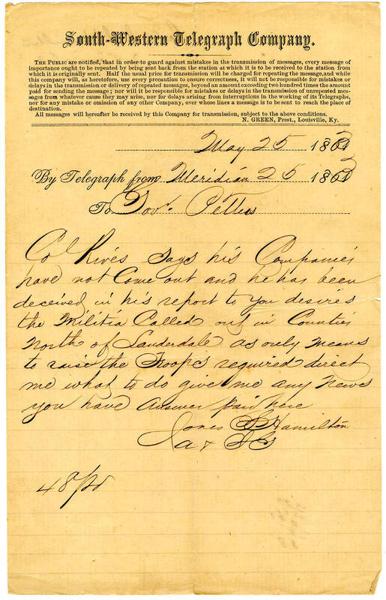 South-Western Telegraph Company.
THE PUBLIC are notified, that in order to guard against mistakes in the transmission of messages, every message of
importance ought to be repeated by being sent back from the station at which it is to be received to the station from
which it is originally sent. Half the usual price for transmission will be charged for repeating the message, and while
this company will, as heretofore, use every precaution to ensure correctness, it will not be responsible for mistakes or
delays in the transmission or delivery of repeated messages, beyond an amount exceeding two hundred times the amount
paid for sending the message; nor will it be responsible for mistakes or delays in the transmission of unrepeated messages
from whatever cause they may arise, nor for delays arising from interruptions in the working of its Telegraphs,
nor for any mistake or omission of any other Company, over whose lines a message is to be sent to reach the place of
destination.
All messages will hereafter be received by this Company for transmission, subject to the above conditions.
N. GREEN, Prest., Louisville, Ky.
May 25 1863
By Telegraph from Meridian 26 1863
To Gov. Pettus
Col Rives says his Companies
have not Come out and he has been
deceived in his report to you desires
the Militia Called out in Counties
North of Lauderdale as only means
to raise the Troops required direct
me what to do give me any news
you have answer paid here
Jones S Hamilton
A & I G
48/pd